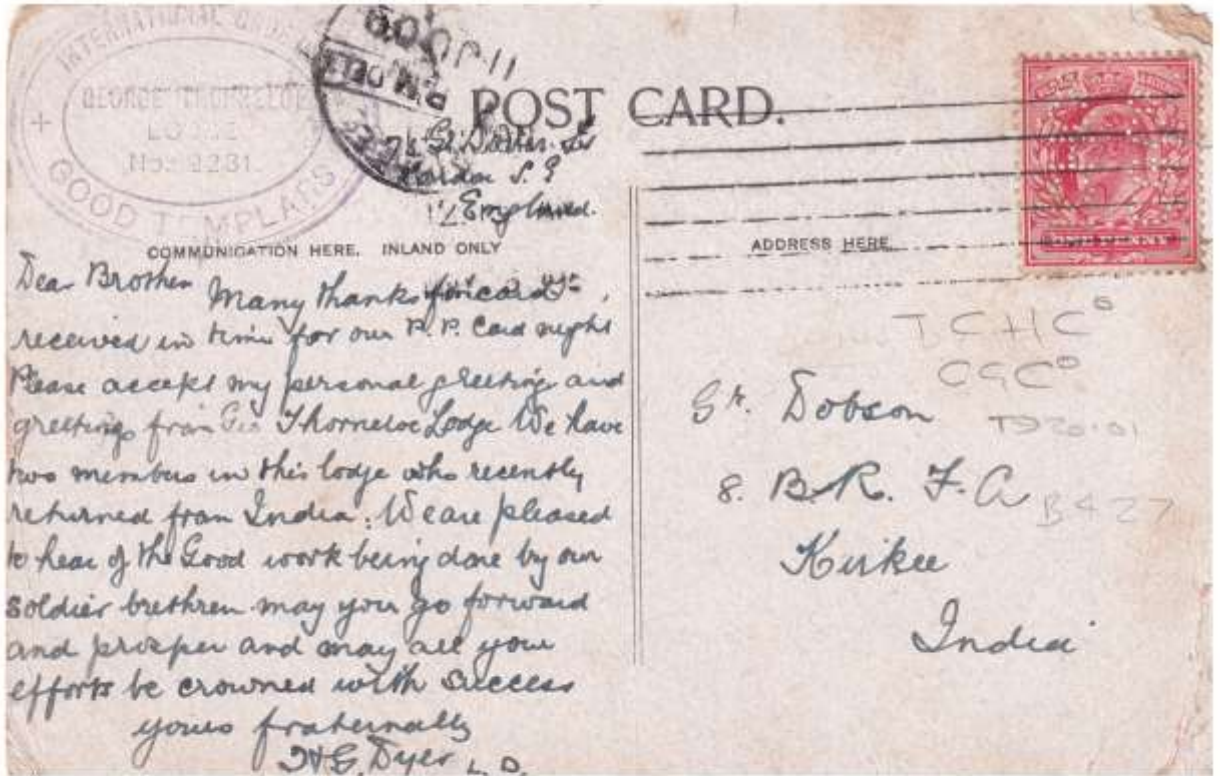 INTERNATIONAL ORDER
GEORGE THORNELOE
LODGE
No. 2231
GOOD TEMPLARS
11 JU 09
POST CARD.
London S.E
COMMUNICATION HERE. INLAND ONLY
ADDRESS HERE.
Dear Brother
Many thanks for card
received in time for our P.P. Card night
Please accept my personal greeting and
greetings from Geo Thorneloe Lodge We have
two members in this lodge who recently
returned from India. We are pleased
to hear of the Good work being done by our
soldier brethren may you go forward
and prosper and may all your
efforts be crowned with success
yours fraternally
Dyer L.D.
Gr. Dobson
8. B R. F. A
Kirkee
India
TCHC
CGC
B427